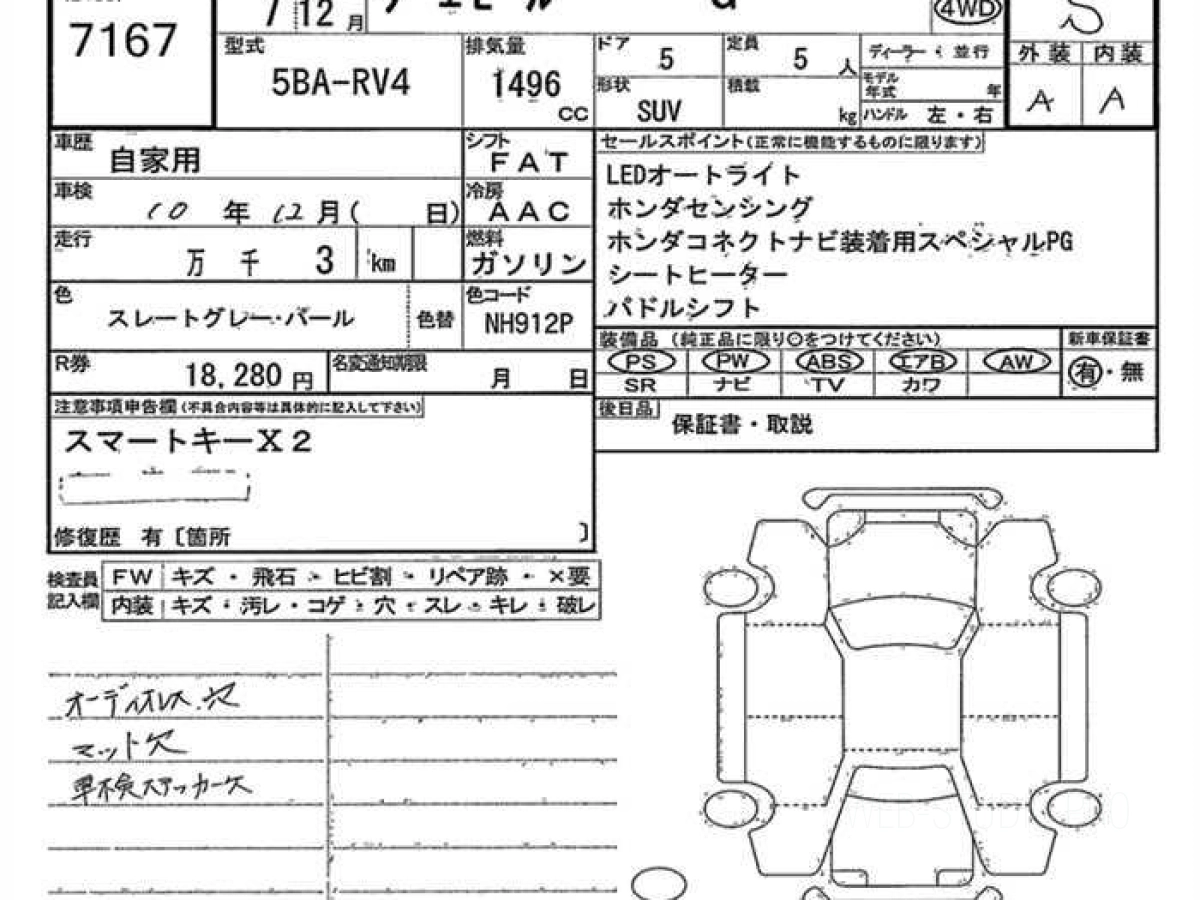 7167
7/12月
G
4WD
S
型式
5BA-RV4
排気量
1496
CC
ドア
5
定員
5
人
ディーラー・並行
モデル年式
年
形状
SUV
積載
kg
ハンドル 左・右
外装 内装
A A
車歴
自家用
シフト
FAT
車検
10年12月(日)
冷房
AAC
走行
万 千 3 km
燃料
ガソリン
色
スレートグレー・パール
色替
色コード
NH912P
R券
18,280円
名変通知期限
月 日
セールスポイント(正常に機能するものに限ります)
LEDオートライト
ホンダセンシング
ホンダコネクトナビ装着用スペシャルPG
シートヒーター
パドルシフト
装備品 (純正品に限り〇をつけてください)
新車保証書
PS PW ABS エアB AW
SR ナビ TV カワ
有・無
後日品
保証書・取説
注意事項申告欄(不具合内容等は具体的に記入して下さい)
スマートキーX2
修復歴 有〔箇所 〕
検査員記入欄
FW キズ・飛石・ヒビ割・リペア跡・×要
内装 キズ・汚レ・コゲ・穴・スレ・キレ・破レ
オーディオレス.穴
マット欠
車検ステッカー欠